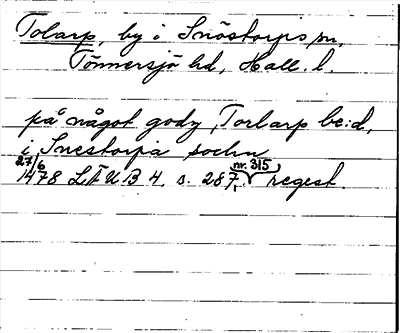 Tolarp, by i Snöstorps sn,
Tönnersjö hd, Hall. l.
på något godz, Torlarp be:d,
i Snestorpa sochn
27/6 nr. 315
1478 LFUB 4, s. 287, regest.